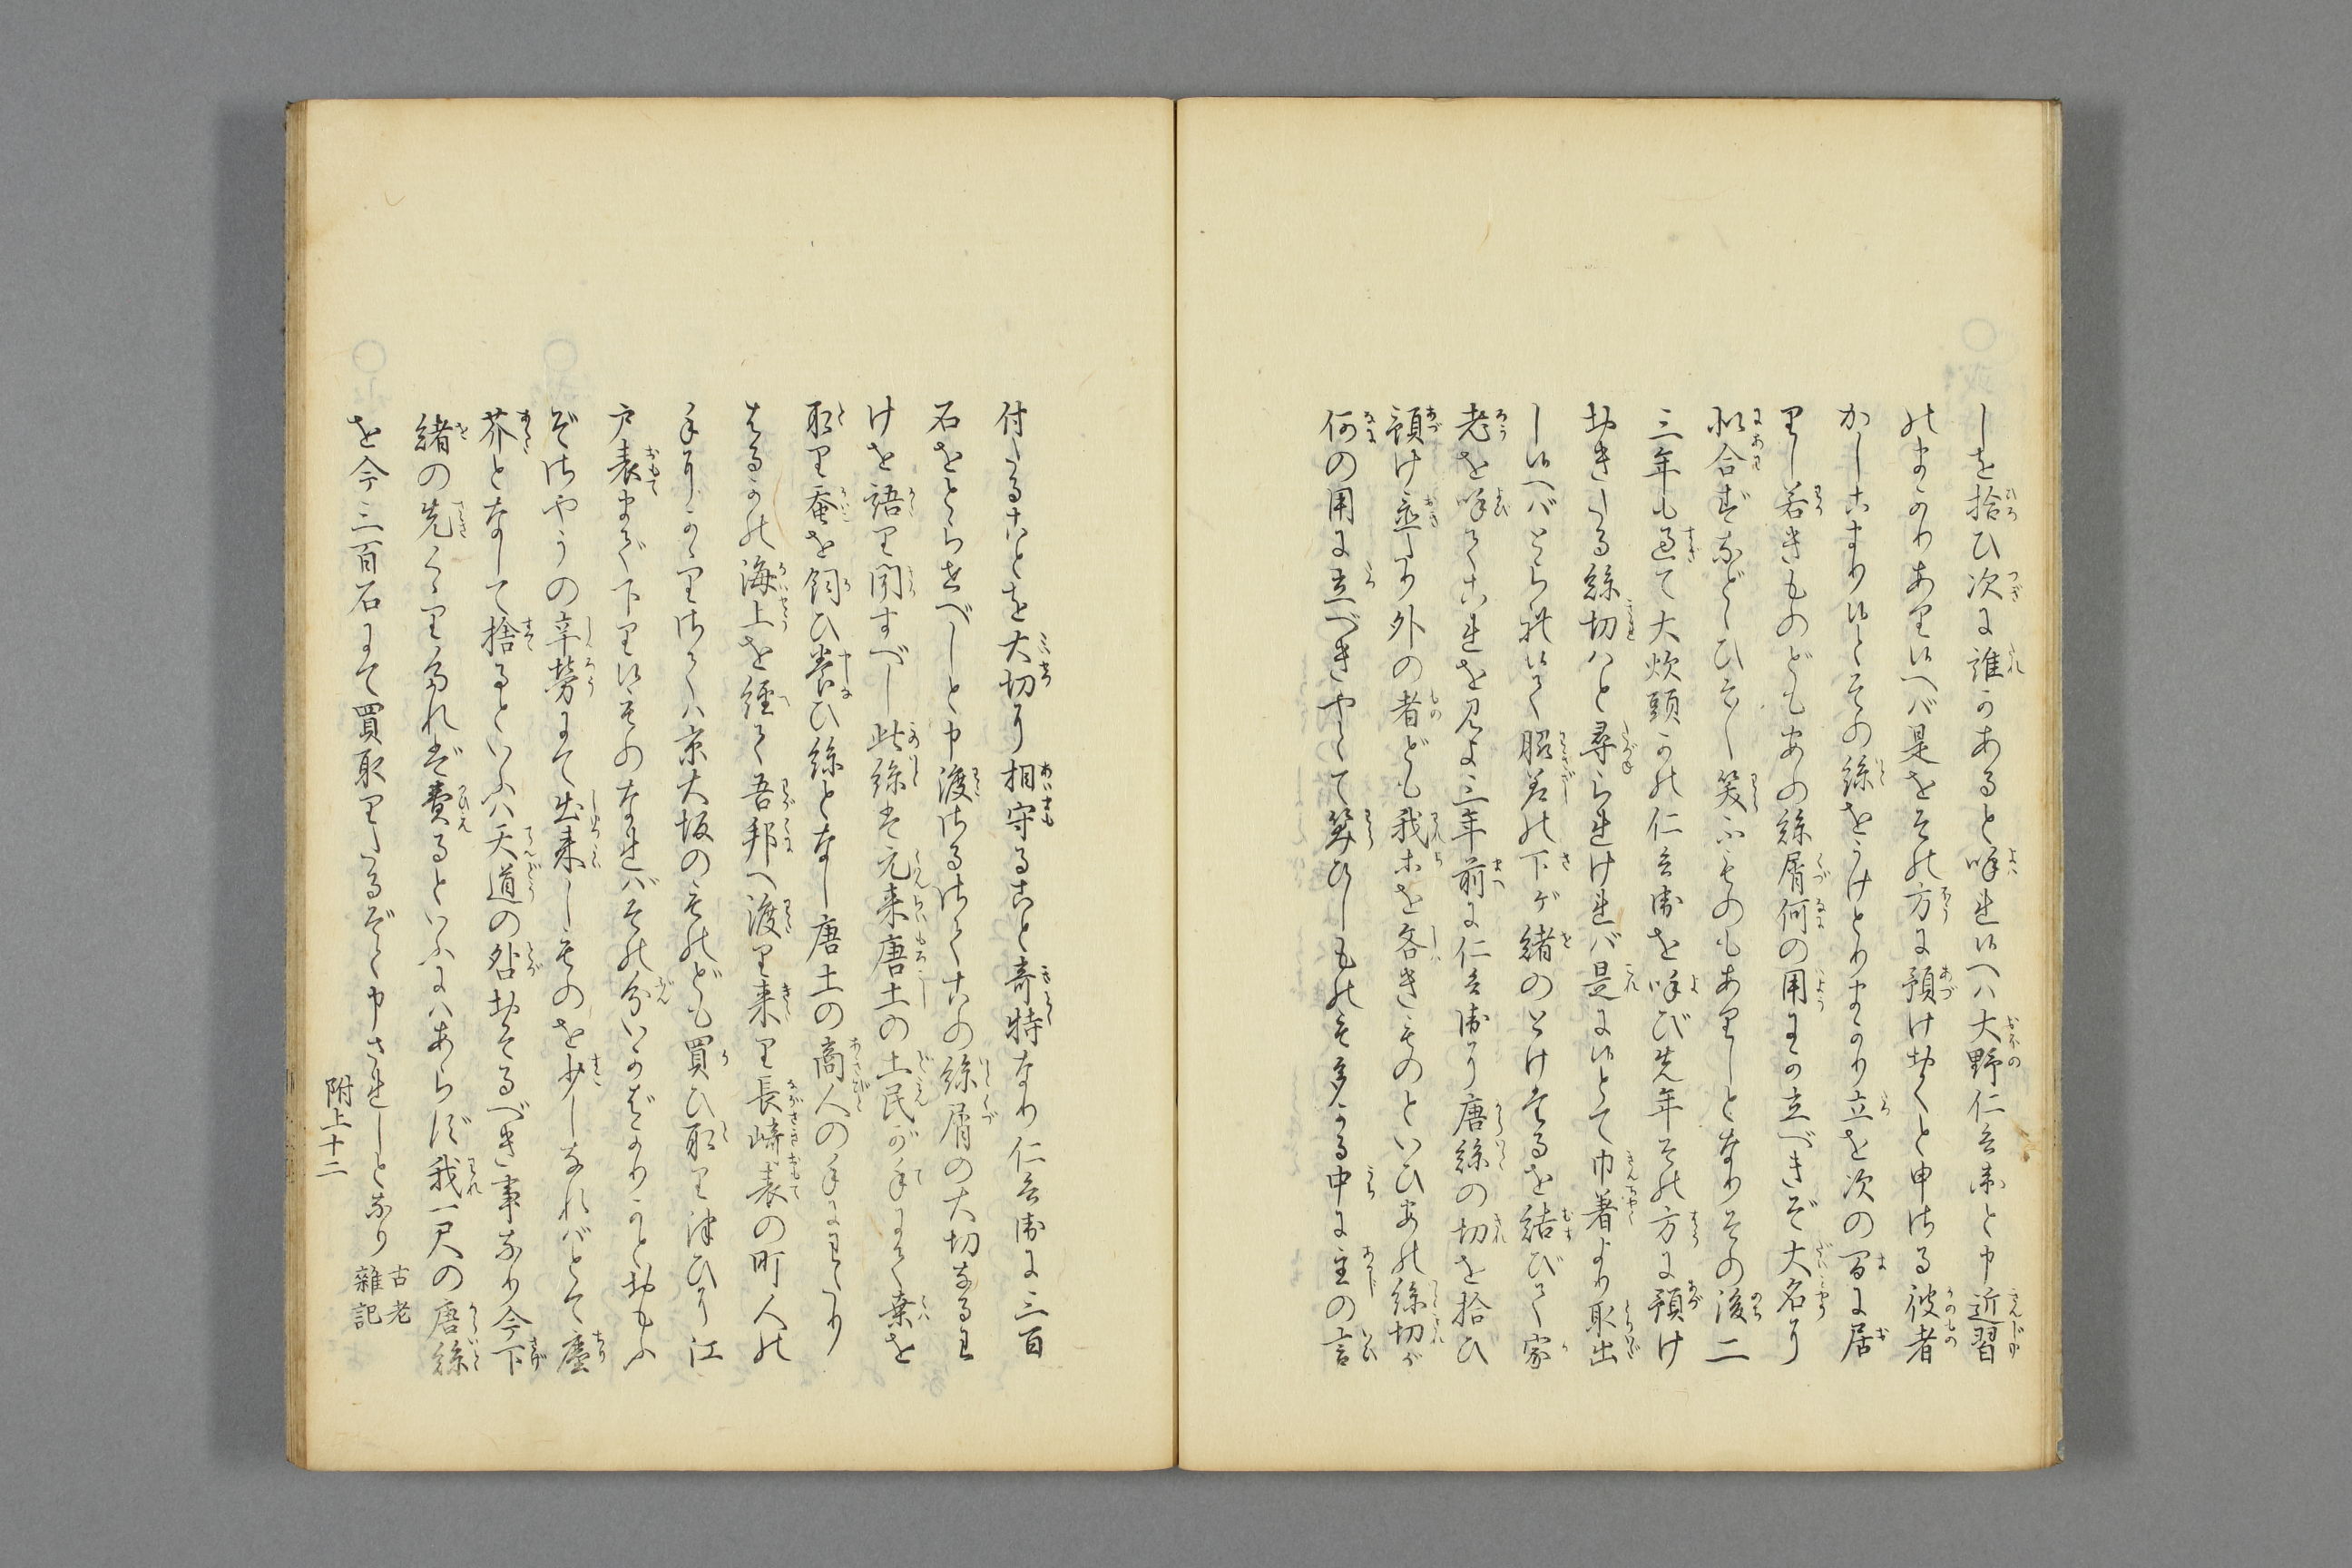 しを拾ひ次に誰かあると呼れ候へハ大野仁兵衛と申近習
のまかりあり候へバ是をその方に預け置くと申ける彼者
かしこまり候とその絲をうけとりまかり立を次の間に居
りし若きものどもあの絲屑何の用にか立べきぞ大名に
似合ざるなどゝひそ〳〵笑ふものもありしとなりその後二
三年も過て大炊頭かの仁兵衛を呼び先年その方に預け
おきたる絲切ハと尋られければ是に候とて巾着より取出
し候へバとられ候て脇差の下ゲ緒のとけたるを結びて家
老を呼てこれを見よ三年前に仁兵衛に唐絲の切を拾ひ
預け置たり外の者ども我等を吝きものといひあの絲切が
何の用に立べきやとて笑ひしもの多かる中に主の言
付たることを大切に相守ること奇特なり仁兵衛に三百
石をとらすべしと申渡しけるさてこの絲屑の大切なるわ
けを語り聞すべし此絲は元来唐土の土民が手にて桑を
取り蚕を飼ひ養ひ絲となし唐土の商人の手にわたり
はるかの海上を経て吾邦へ渡り来り長崎表の町人の
手にかゝりさてハ京大坂のものども買ひ取り伝ひに江
戸表まで下り候ものなればその分いかばかりかとおもふ
ぞさやうの辛労にて出来しものを少しなればとて塵
芥となして捨るといふハ天道の咎おそるべき事なり今下
緒の先くゝりたれば費るといふにハあらず我一尺の唐絲
を今三百石にて買取りたるぞと申されしとなり 古老雜記
附上十二